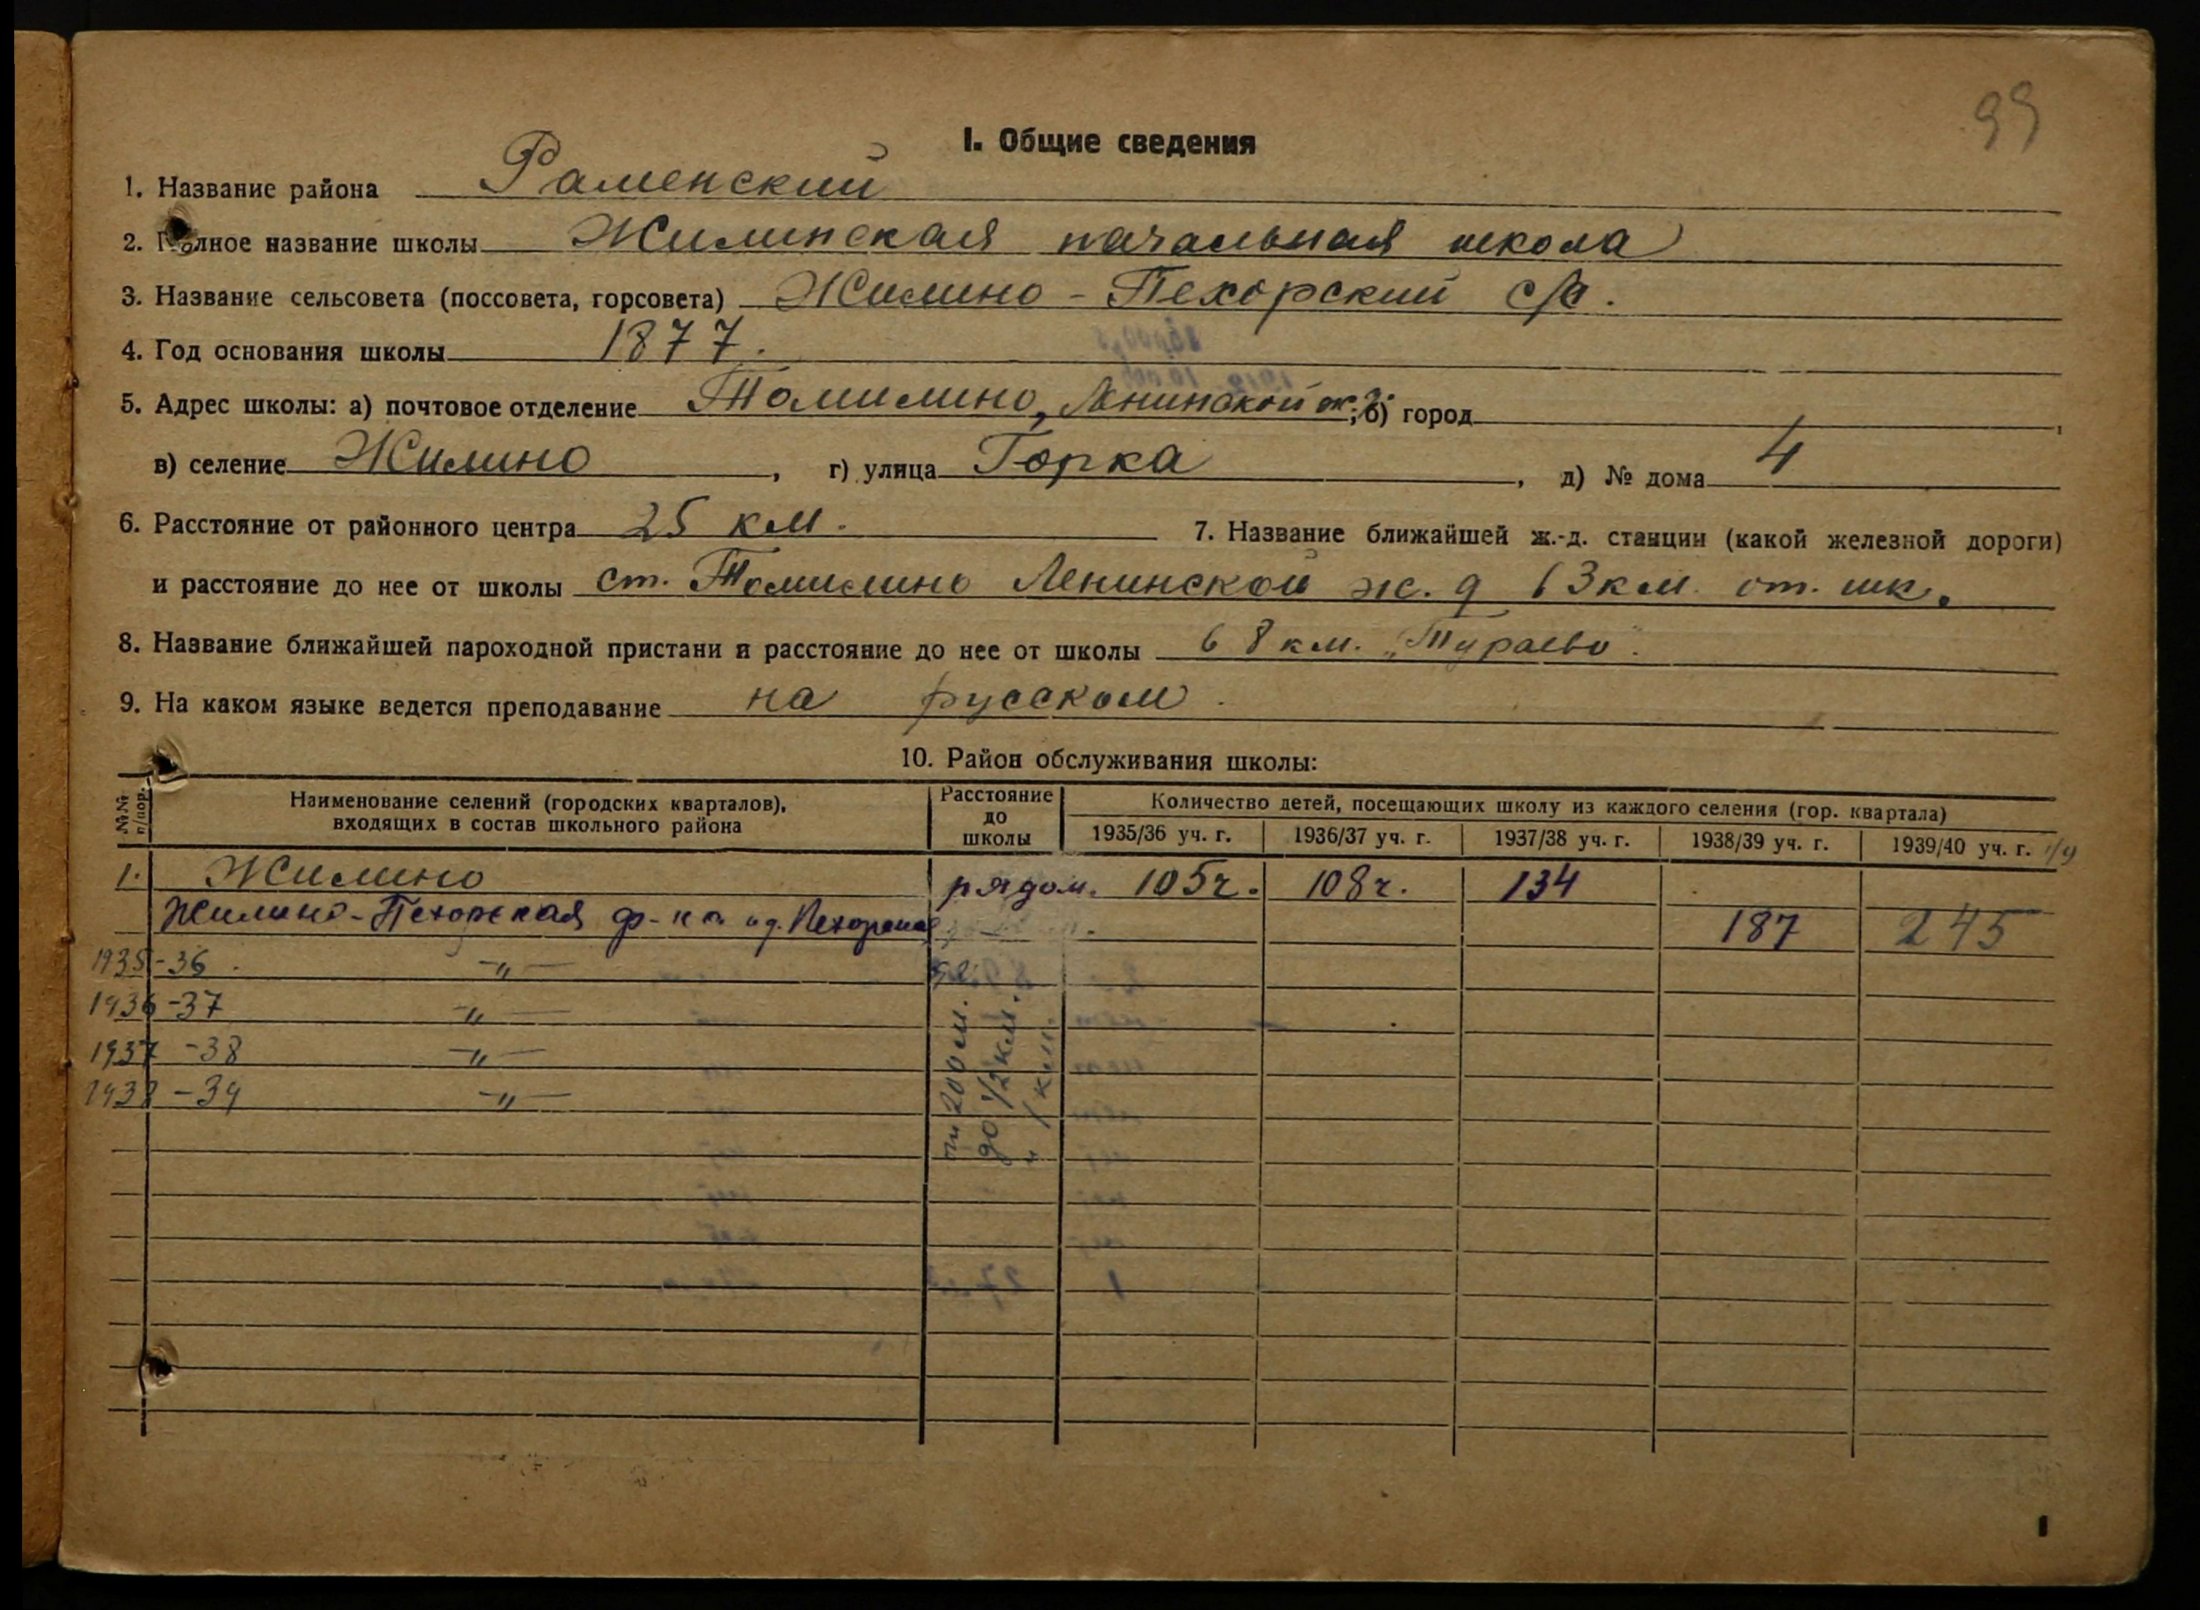 99
I. Общие сведения
1. Название района Раменский
2. Полное название школы Жилинская начальная школа
3. Название сельсовета (поссовета, горсовета) Жилино-Пехорский с/с.
4. Год основания школы 1877.
5. Адрес школы: а) почтовое отделение Томилино, Ленинской ж.д.; б) город ,
в) селение Жилино , г) улица Горка , д) № дома 4
6. Расстояние от районного центра 25 км. 7. Название ближайшей ж.-д. станции (какой железной дороги)
и расстояние до нее от школы ст. Томилино Ленинской ж. д в 3 км. от. шк.
8. Название ближайшей пароходной пристани и расстояние до нее от школы в 8 км. „Тураево".
9. На каком языке ведется преподавание на русском.
10. Район обслуживания школы:
№№ п/пор. Наименование селений (городских кварталов), входящих в состав школьного района Расстояние до школы Количество детей, посещающих школу из каждого селения (гор. квартала)
1935/36 уч. г. 1936/37 уч. г. 1937/38 уч. г. 1938/39 уч. г. 1939/40 уч. г.
1. Жилино рядом. 105ч. 108ч. 134
Жилино-Пехорская ф-ка и д. Пехорка 187 245
1935-36. -„-
1936-37 -„-
1937-38 -„-
1938-39 -„-
от 200 м.
до 1/2 км.
и 1 км.
1